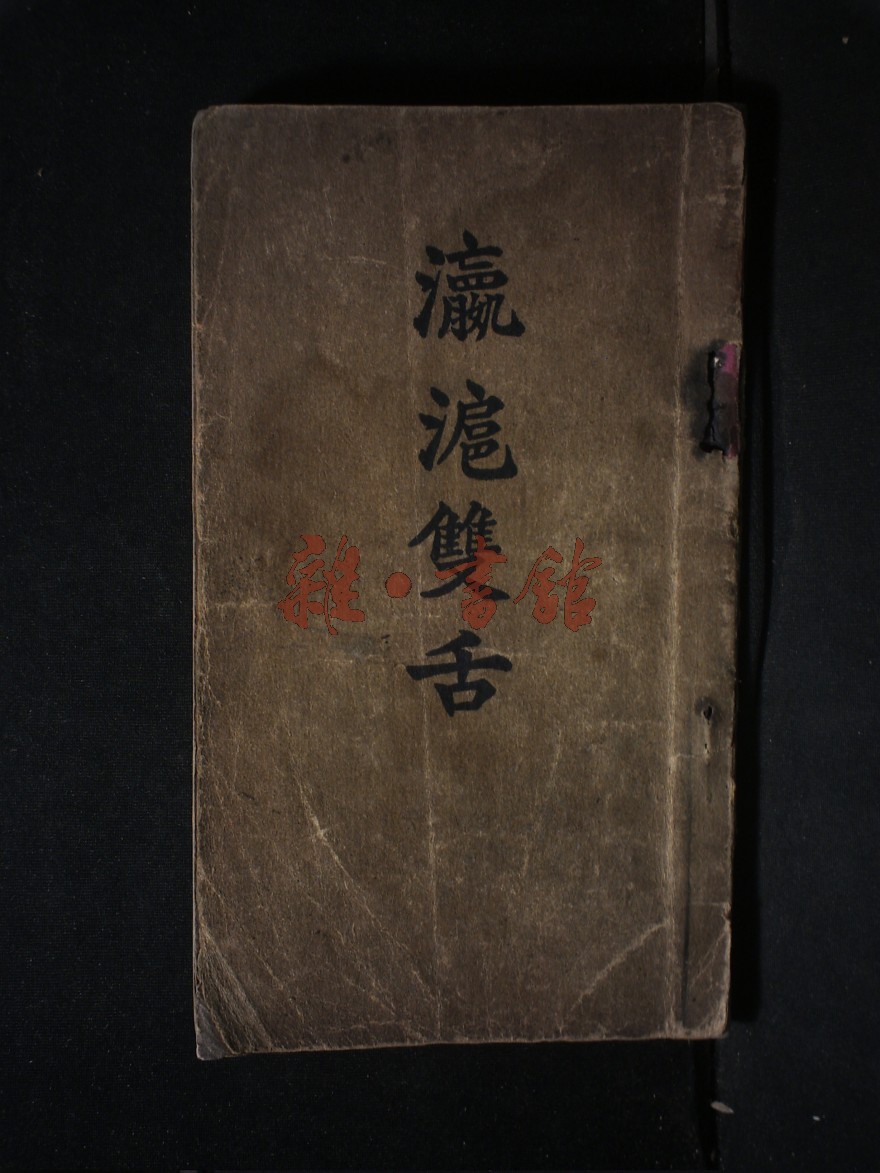 瀛滬雙舌
雜·書館